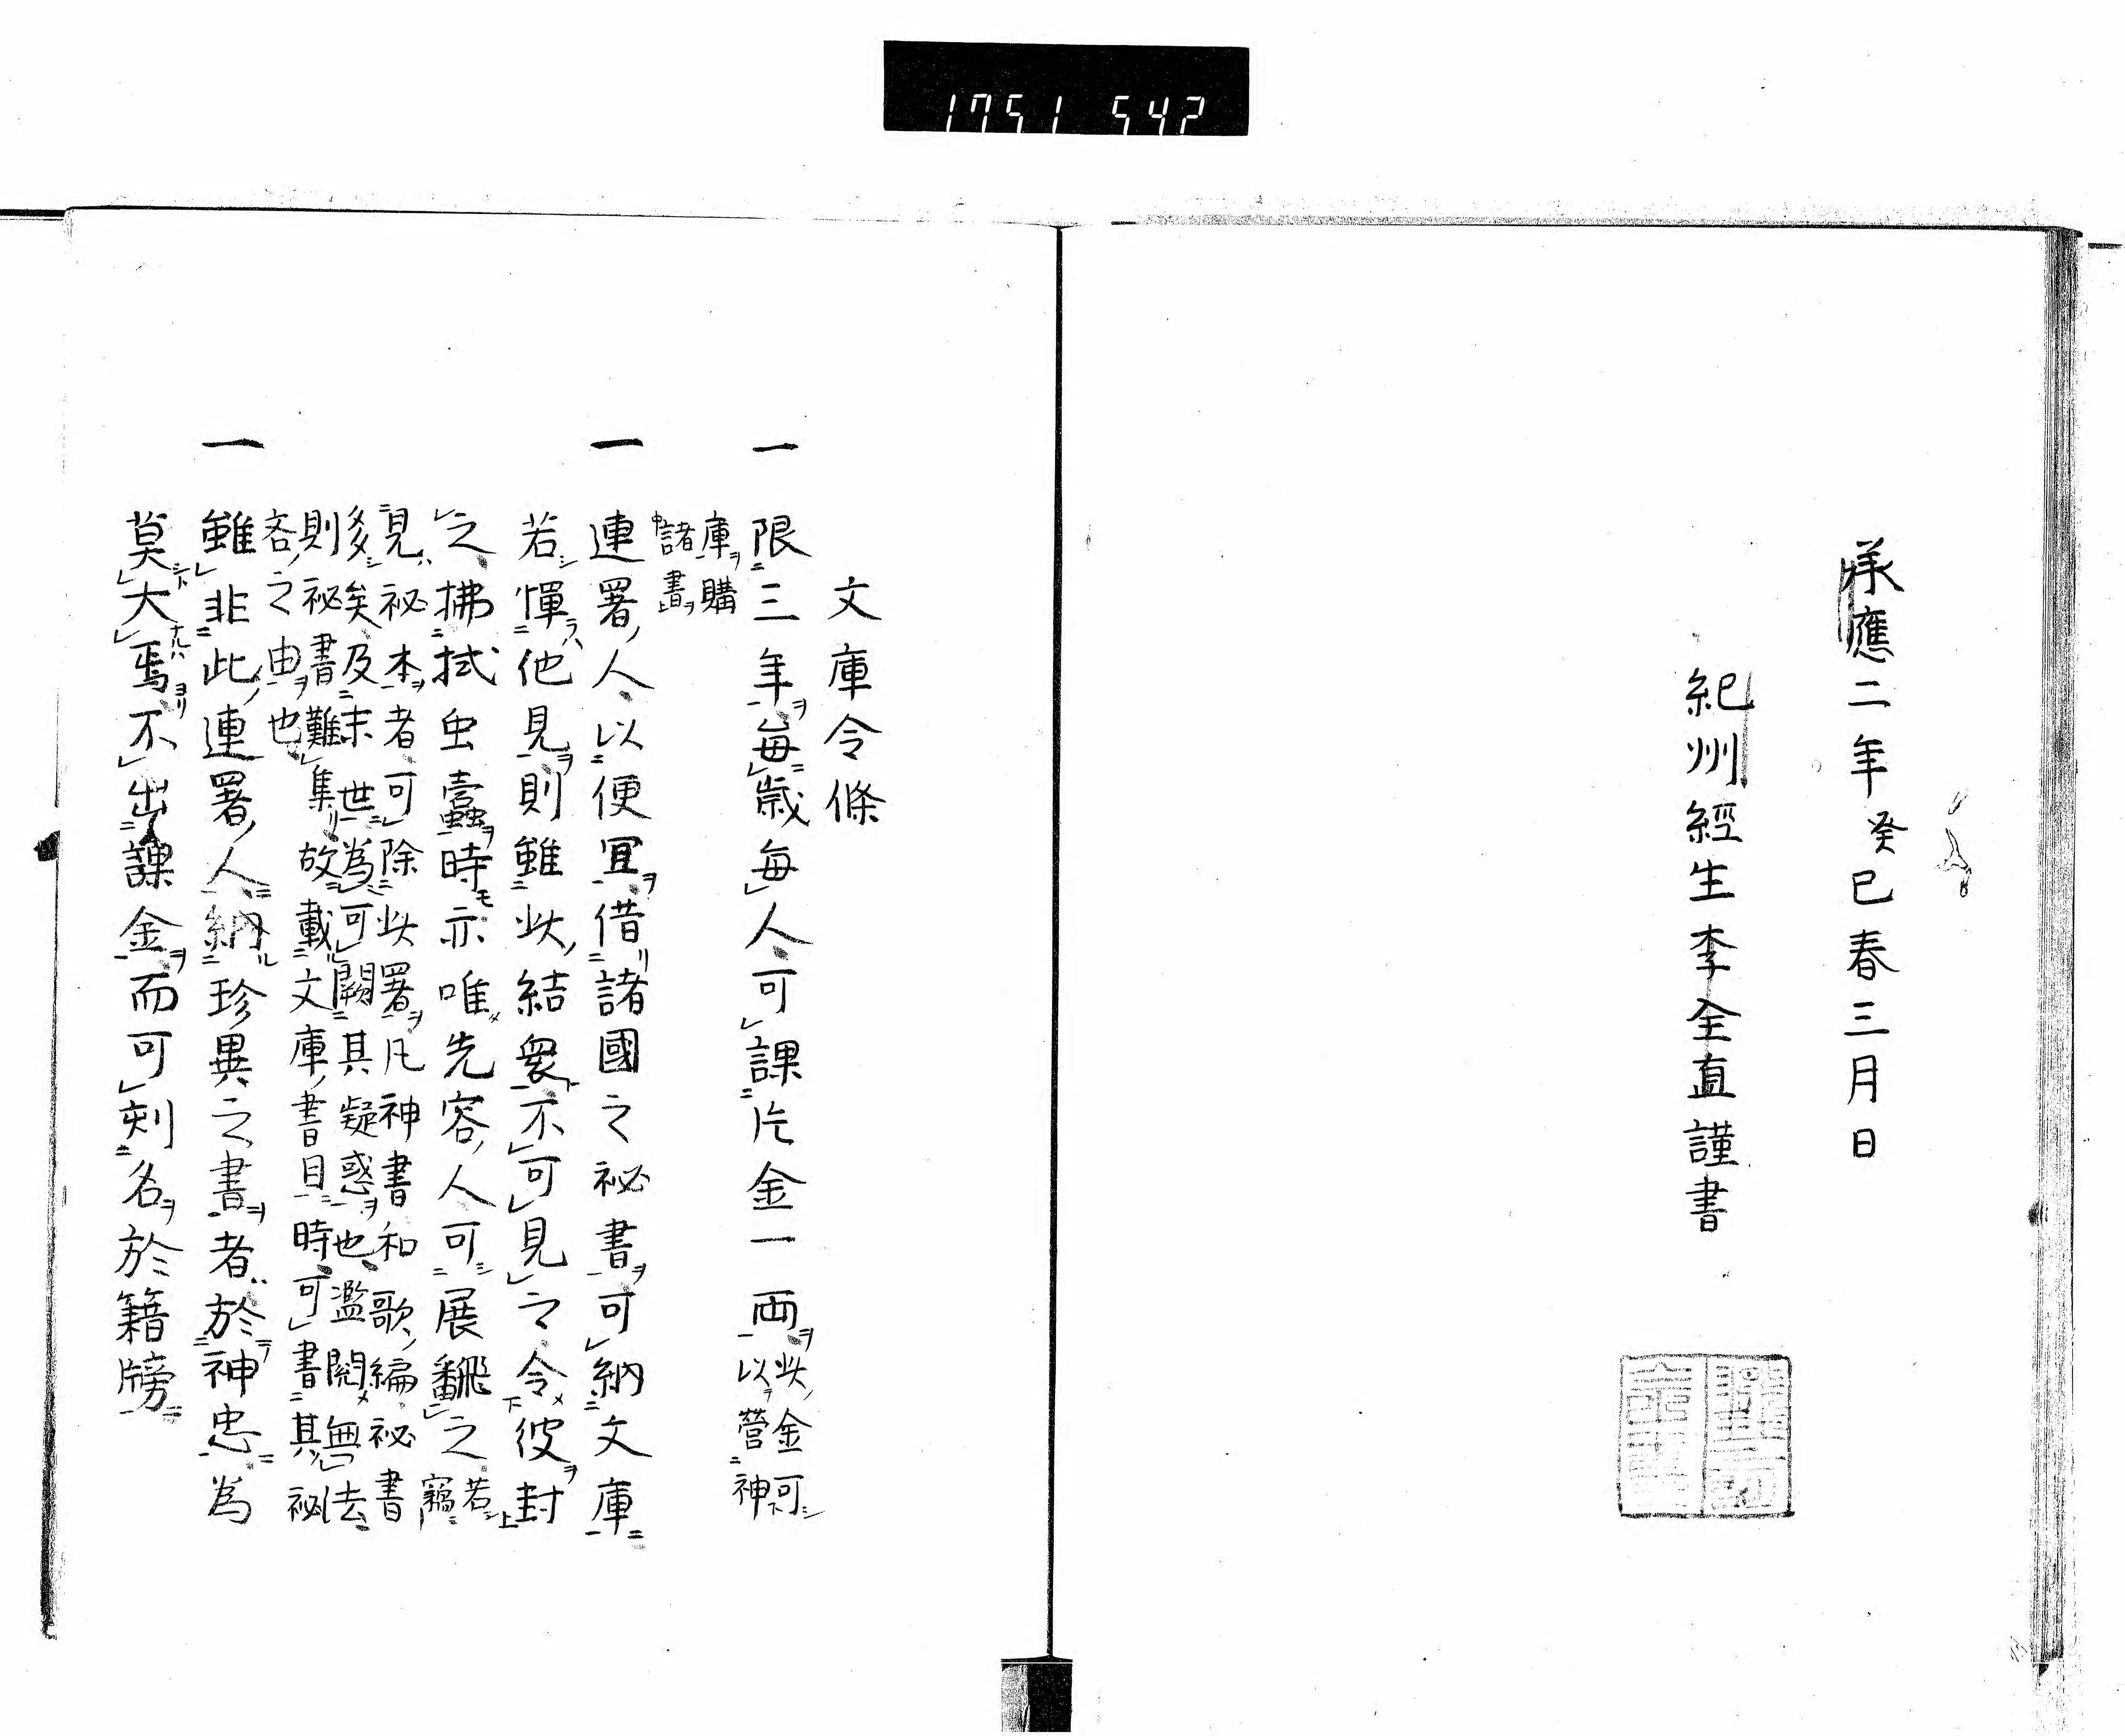 1751 542
承應二年癸巳春三月日
紀州經生李全直謹書
文庫令條
一 限三年毎歳毎人可課片金一両 此金可
以營神
庫購
諸書
一 連署人以便宜借諸國之祕書可納文庫
若憚他見則雖此結衆不可見之令彼封
之拂拭虫蠧時亦唯先容人可展飜之 若
竊
見祕本者可除此署凡神書和歌編祕書
多矣及末世為可闕其疑惑也濫閲無法
則祕書難集故載文庫書目時可書其祕
吝之由也
一 雖非此連署人納珍異之書者於神忠為
莫大焉不出課金而可刻名於籍牓